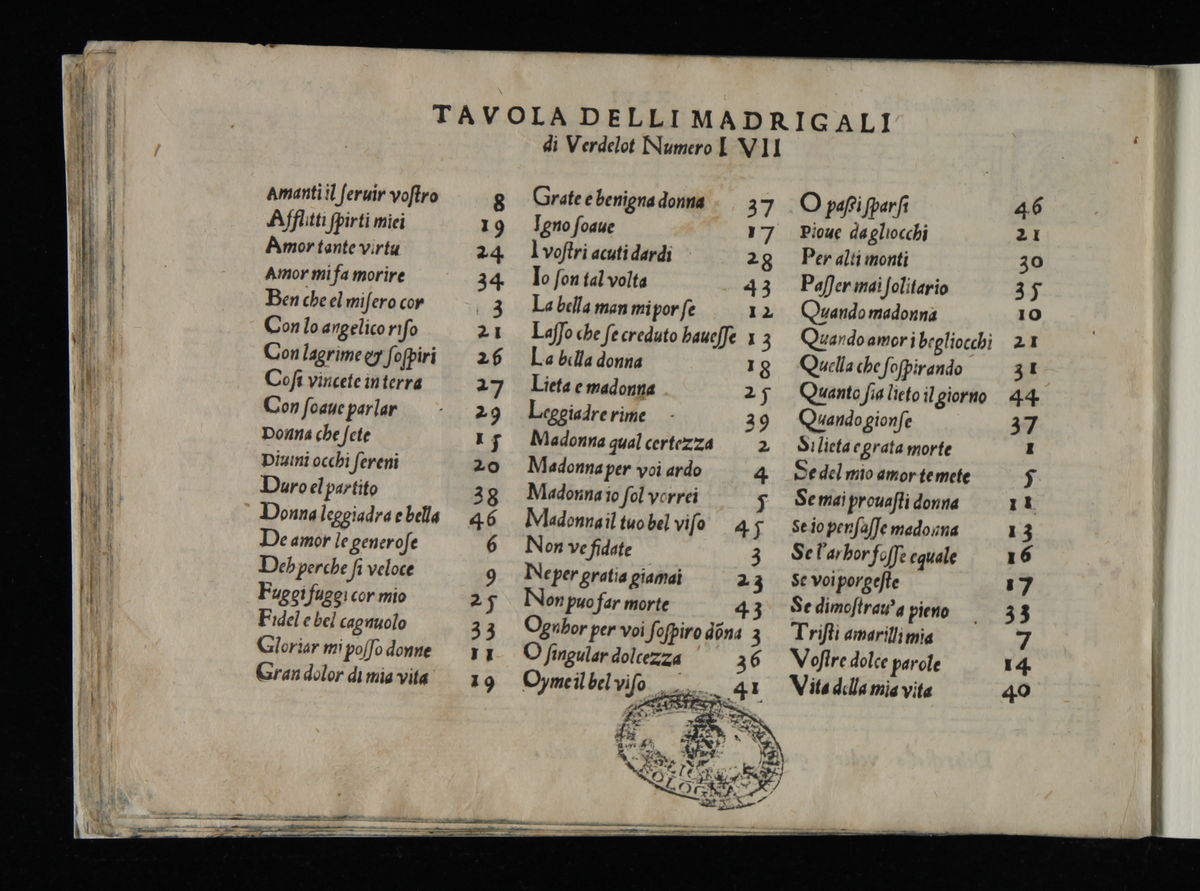 TAVOLA DELLI MADRIGALI
di Verdelot Numero I VII
Amanti il ſeruir voſtro 8
Afflitti ſpirti miei 19
Amor tante virtu 24
Amor mi fa morire 34
Ben che el miſero cor 3
Con lo angelico riſo 21
Con lagrime & ſoſpiri 26
Coſi vincete in terra 27
Con ſoaue parlar 29
Donna che ſete 15
Diuini occhi ſereni 20
Duro el partito 38
Donna leggiadra e bella 46
De amor le generoſe 6
Deh perche ſi veloce 9
Fuggi fuggi cor mio 25
Fidel e bel cagnuolo 33
Gloriar mi poſſo donne 11
Gran dolor di mia vita 19
Grate e benigna donna 37
Igno ſoaue 17
I voſtri acuti dardi 28
Io ſon tal volta 43
La bella man mi porſe 12
Laſſo che ſe creduto haueſſe 13
La bella donna 18
Lieta e madonna 25
Leggiadre rime 39
Madonna qual certezza 2
Madonna per voi ardo 4
Madonna io ſol vorrei 5
Madonna il tuo bel viſo 45
Non ve fidate 3
Ne per gratia giamai 23
Non puo far morte 43
Ognhor per voi ſoſpiro dõna 3
O ſingular dolcezza 36
Oyme il bel viſo 41
O paßi ſparſi 46
Pioue dagliocchi 21
Per alti monti 30
Paſſer mai ſolitario 35
Quando madonna 10
Quando amor i begliocchi 21
Quella che ſoſpirando 31
Quanto ſia lieto il giorno 44
Quando gionſe 37
Si lieta e grata morte 1
Se del mio amor temete 5
Se mai prouaſti donna 11
Se io penſaſſe madonna 13
Se l'arhor foſſe equale 16
Se voi porgeſte 17
Se dimoſtrau'a pieno 33
Triſti amarilli mia 7
Voſtre dolce parole 14
Vita della mia vita 40
BOLOGNA